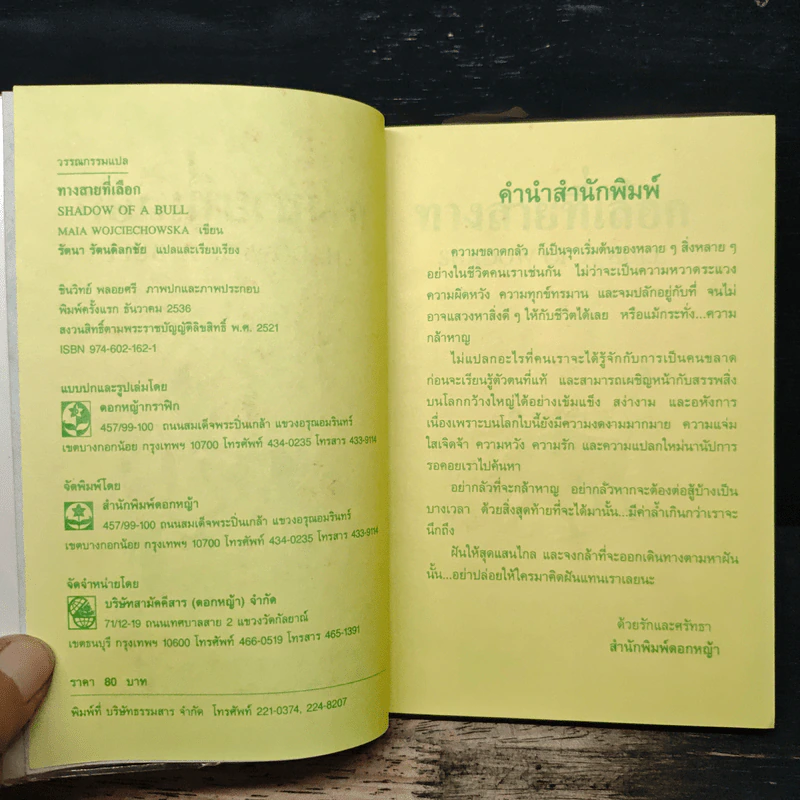 วรรณกรรมแปล
ทางสายที่เลือก
SHADOW OF A BULL
MAIA WOJCIECHOWSKA เขียน
รัตนา รัตนดิลกชัย แปลและเรียบเรียง
ชินวิทย์ พลอยศรี ภาพปกและภาพประกอบ
พิมพ์ครั้งแรก ธันวาคม 2536
สงวนสิทธิ์ตามพระราชบัญญัติลิขสิทธิ์ พ.ศ. 2521
ISBN 974-602-162-1
แบบปกและรูปเล่มโดย
ดอกหญ้ากราฟิก
457/99-100 ถนนสมเด็จพระปิ่นเกล้า แขวงอรุณอมรินทร์
เขตบางกอกน้อย กรุงเทพฯ 10700 โทรศัพท์ 434-0235 โทรสาร 433-9114
จัดพิมพ์โดย
สำนักพิมพ์ดอกหญ้า
457/99-100 ถนนสมเด็จพระปิ่นเกล้า แขวงอรุณอมรินทร์
เขตบางกอกน้อย กรุงเทพฯ 10700 โทรศัพท์ 434-0235 โทรสาร 433-9114
จัดจำหน่ายโดย
บริษัทสามัคคีสาร (ดอกหญ้า) จำกัด
71/12-19 ถนนเทศบาลสาย 2 แขวงวัดกัลยาณ์
เขตธนบุรี กรุงเทพฯ 10600 โทรศัพท์ 466-0519 โทรสาร 465-1391
ราคา 80 บาท
พิมพ์ที่ บริษัทธรรมสาร จำกัด โทรศัพท์ 221-0374, 224-8207
คำนำสำนักพิมพ์
ความขลาดกลัว ก็เป็นจุดเริ่มต้นของหลาย ๆ สิ่งหลาย ๆ
อย่างในชีวิตคนเราเช่นกัน ไม่ว่าจะเป็นความหวาดระแวง
ความผิดหวัง ความทุกข์ทรมาน และจมปลักอยู่กับที่ จนไม่
อาจแสวงหาสิ่งดี ๆ ให้กับชีวิตได้เลย หรือแม้กระทั่ง...ความ
กล้าหาญ
ไม่แปลกอะไรที่คนเราจะได้รู้จักกับการเป็นคนขลาด
ก่อนจะเรียนรู้ตัวตนที่แท้ และสามารถเผชิญหน้ากับสรรพสิ่ง
บนโลกกว้างใหญ่ได้อย่างเข้มแข็ง สง่างาม และอหังการ
เนื่องเพราะบนโลกใบนี้ยังมีความงดงามมากมาย ความแจ่ม
ใสเจิดจ้า ความหวัง ความรัก และความแปลกใหม่นานัปการ
รอคอยเราไปค้นหา
อย่ากลัวที่จะกล้าหาญ อย่ากลัวหากจะต้องต่อสู้บ้างเป็น
บางเวลา ด้วยสิ่งสุดท้ายที่จะได้มานั้น...มีค่าล้ำเกินกว่าเราจะ
นึกถึง
ฝันให้สุดแสนไกล และจงกล้าที่จะออกเดินทางตามหาฝัน
นั้น...อย่าปล่อยให้ใครมาคิดฝันแทนเราเลยนะ
ด้วยรักและศรัทธา
สำนักพิมพ์ดอกหญ้า